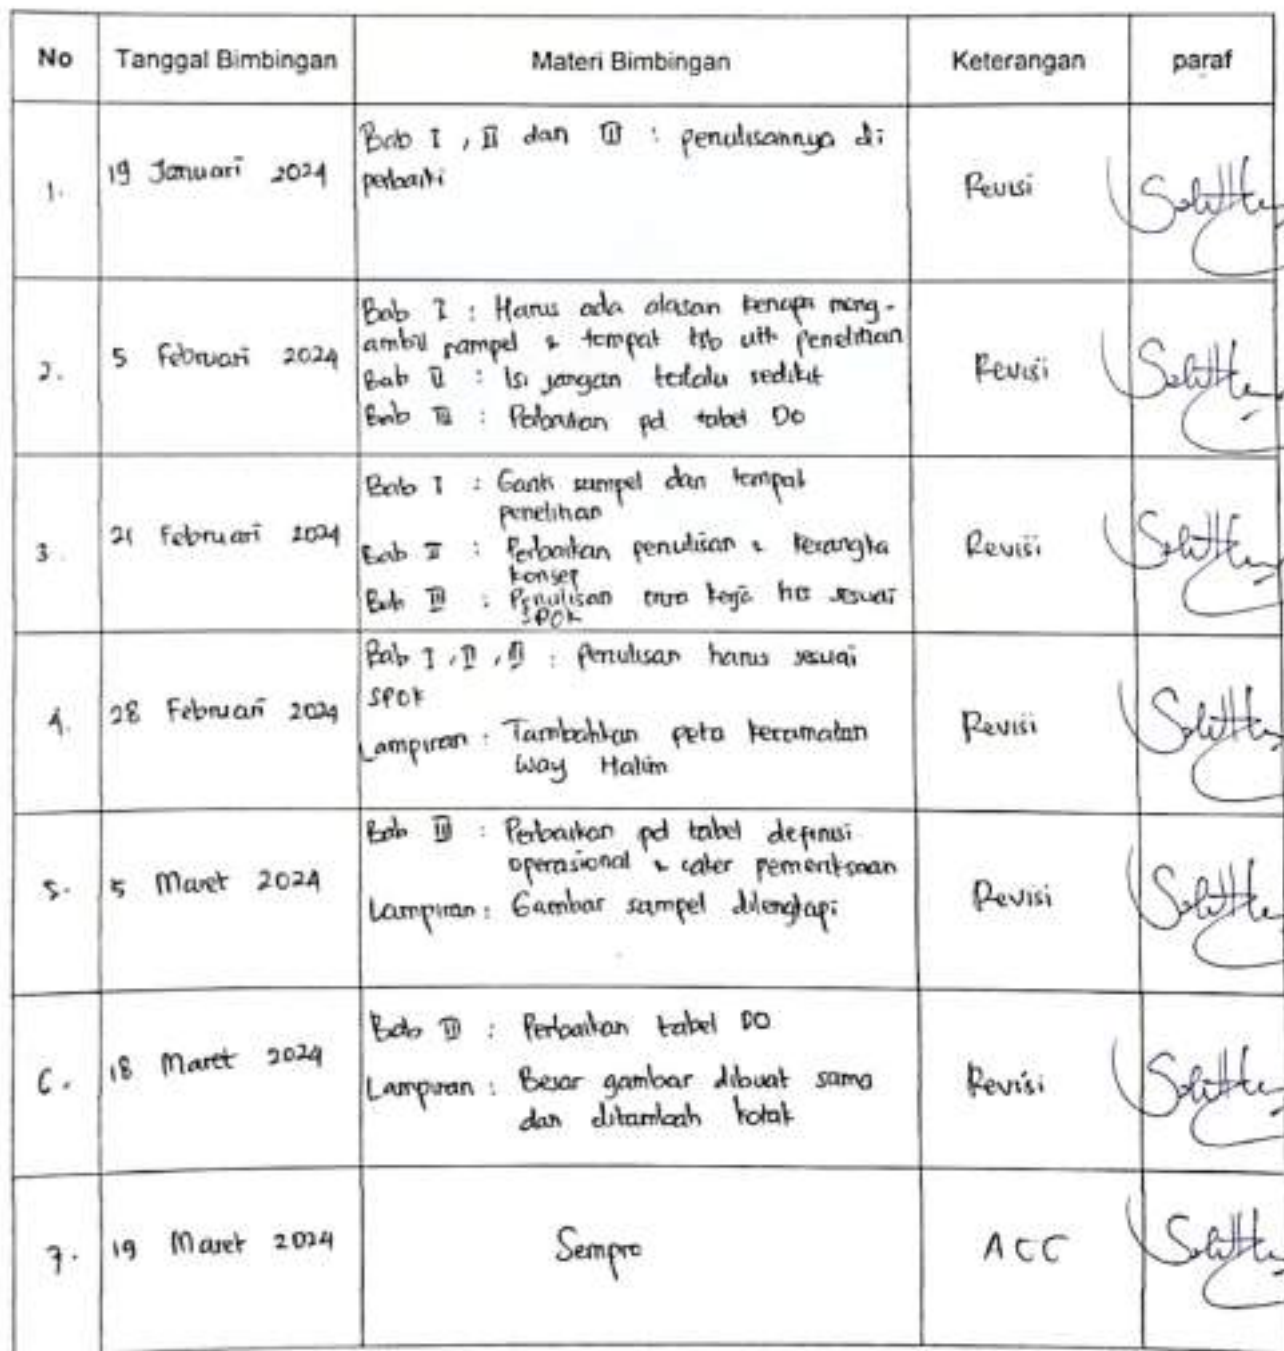 No Tanggal Bimbingan Materi Bimbingan Keterangan paraf
1. 19 Januari 2024 Bab I , II dan III : penulisannya di
perbaiki
Revisi
2. 5 Februari 2024 Bab I : Harus ada alasan kenapa meng-
ambil sampel & tempat tsb utk penelitian
Bab II : Isi jangan terlalu sedikit
Bab III : Perbaikan pd tabel DO
Revisi
3. 21 Februari 2024 Bab I : Ganti sampel dan tempat
penelitian
Bab II : Perbaikan penulisan & kerangka
konsep
Bab III : Penulisan cara kerja hrs sesuai
SPOK
Revisi
4. 28 Februari 2024 Bab I , II , III : Penulisan harus sesuai
SPOK
Lampiran : Tambahkan peta kecamatan
Way Halim
Revisi
5. 5 Maret 2024 Bab III : Perbaikan pd tabel definisi
operasional & pemeriksaan
Lampiran : Gambar sampel dilengkapi
Revisi
6. 18 Maret 2024 Bab III : Perbaikan tabel DO
Lampiran : Besar gambar dibuat sama
dan ditambah kotak
Revisi
7. 19 Maret 2024 Sempro ACC